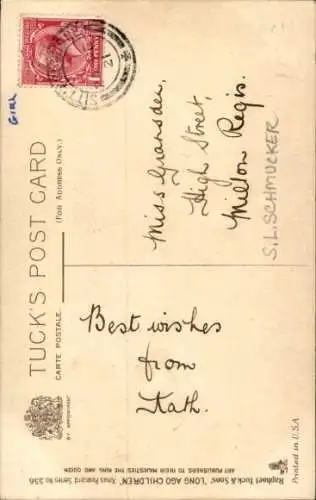 GIRL
TUCK'S POST CARD
(FOR ADDRESS ONLY.)
CARTE POSTALE.
BY APPOINTMENT
Best wishes
from
Kath.
Miss Gransden,
High Street,
Milton Regis.
S.L. SCHMUCKER
Raphael Tuck & Sons' "LONG AGO CHILDREN," Xmas Postcard Series No 336
ART PUBLISHERS TO THEIR MAJESTIES THE KING AND QUEEN
Printed in U.S.A